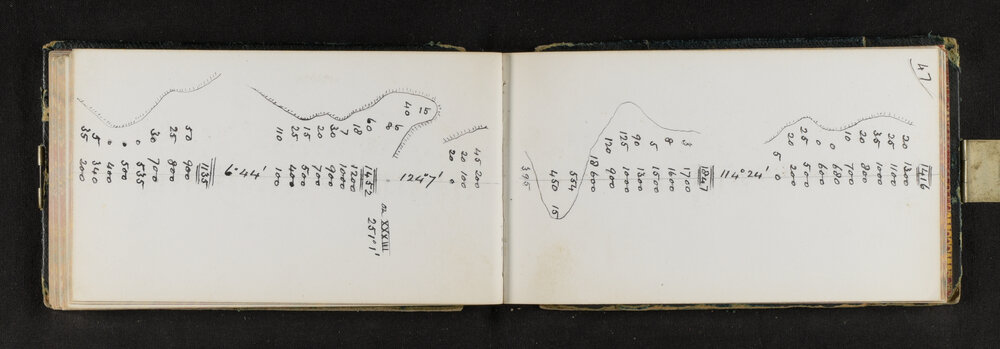 47
1416
20 1300
25 1100
35 1000
20 800
10 700
0 680
0 600
25 500
20 200
5 0
114°24'
1847
3 1700
8 1600
5 1500
90 1300
125 1000
120 900
18 600
554
450 15
395
45 200
20 100
20 0
124°7'
15
40
6
8
on XXXIII
251°1'
60 1452
18 1200
7 1000
30 900
20 700
15 500
25 400
110 100
6°44'
1135
50 900
25 800
30 700
0 535
0 500
0 400
5 340
35 200